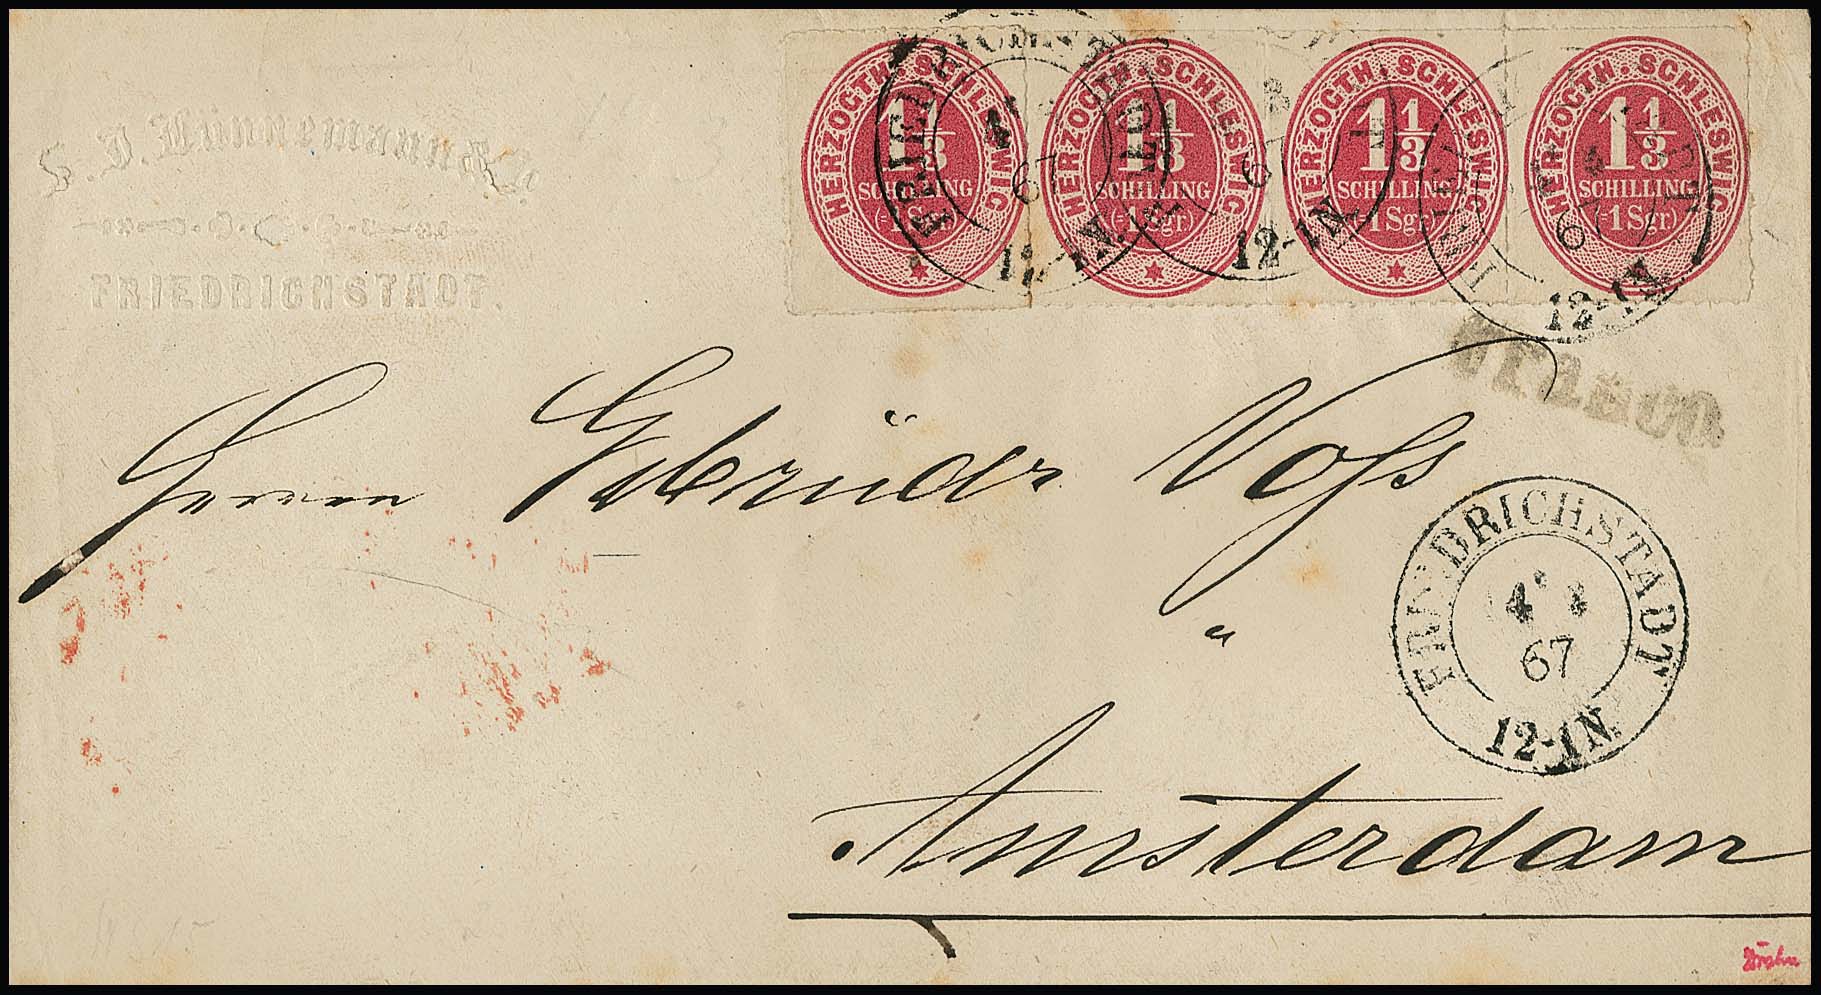 S. J. Lonnemann & Co.
FRIEDRICHSTADT.
HERZOGTH. SCHLESWIG
1 1/3
SCHILLING
(=1 Sgr.)
HERZOGTH. SCHLESWIG
1 1/3
SCHILLING
(=1 Sgr.)
HERZOGTH. SCHLESWIG
1 1/3
SCHILLING
(=1 Sgr.)
HERZOGTH. SCHLESWIG
1 1/3
SCHILLING
(=1 Sgr.)
67
12-1N
67
12-1N
67
12-1N
Herren Gebrüder Voss
FRIEDRICHSTADT
4
67
12-1N
Amsterdam